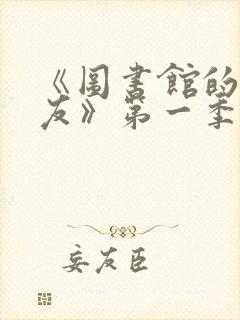 《圖書館的
友》第一季
妄友臣